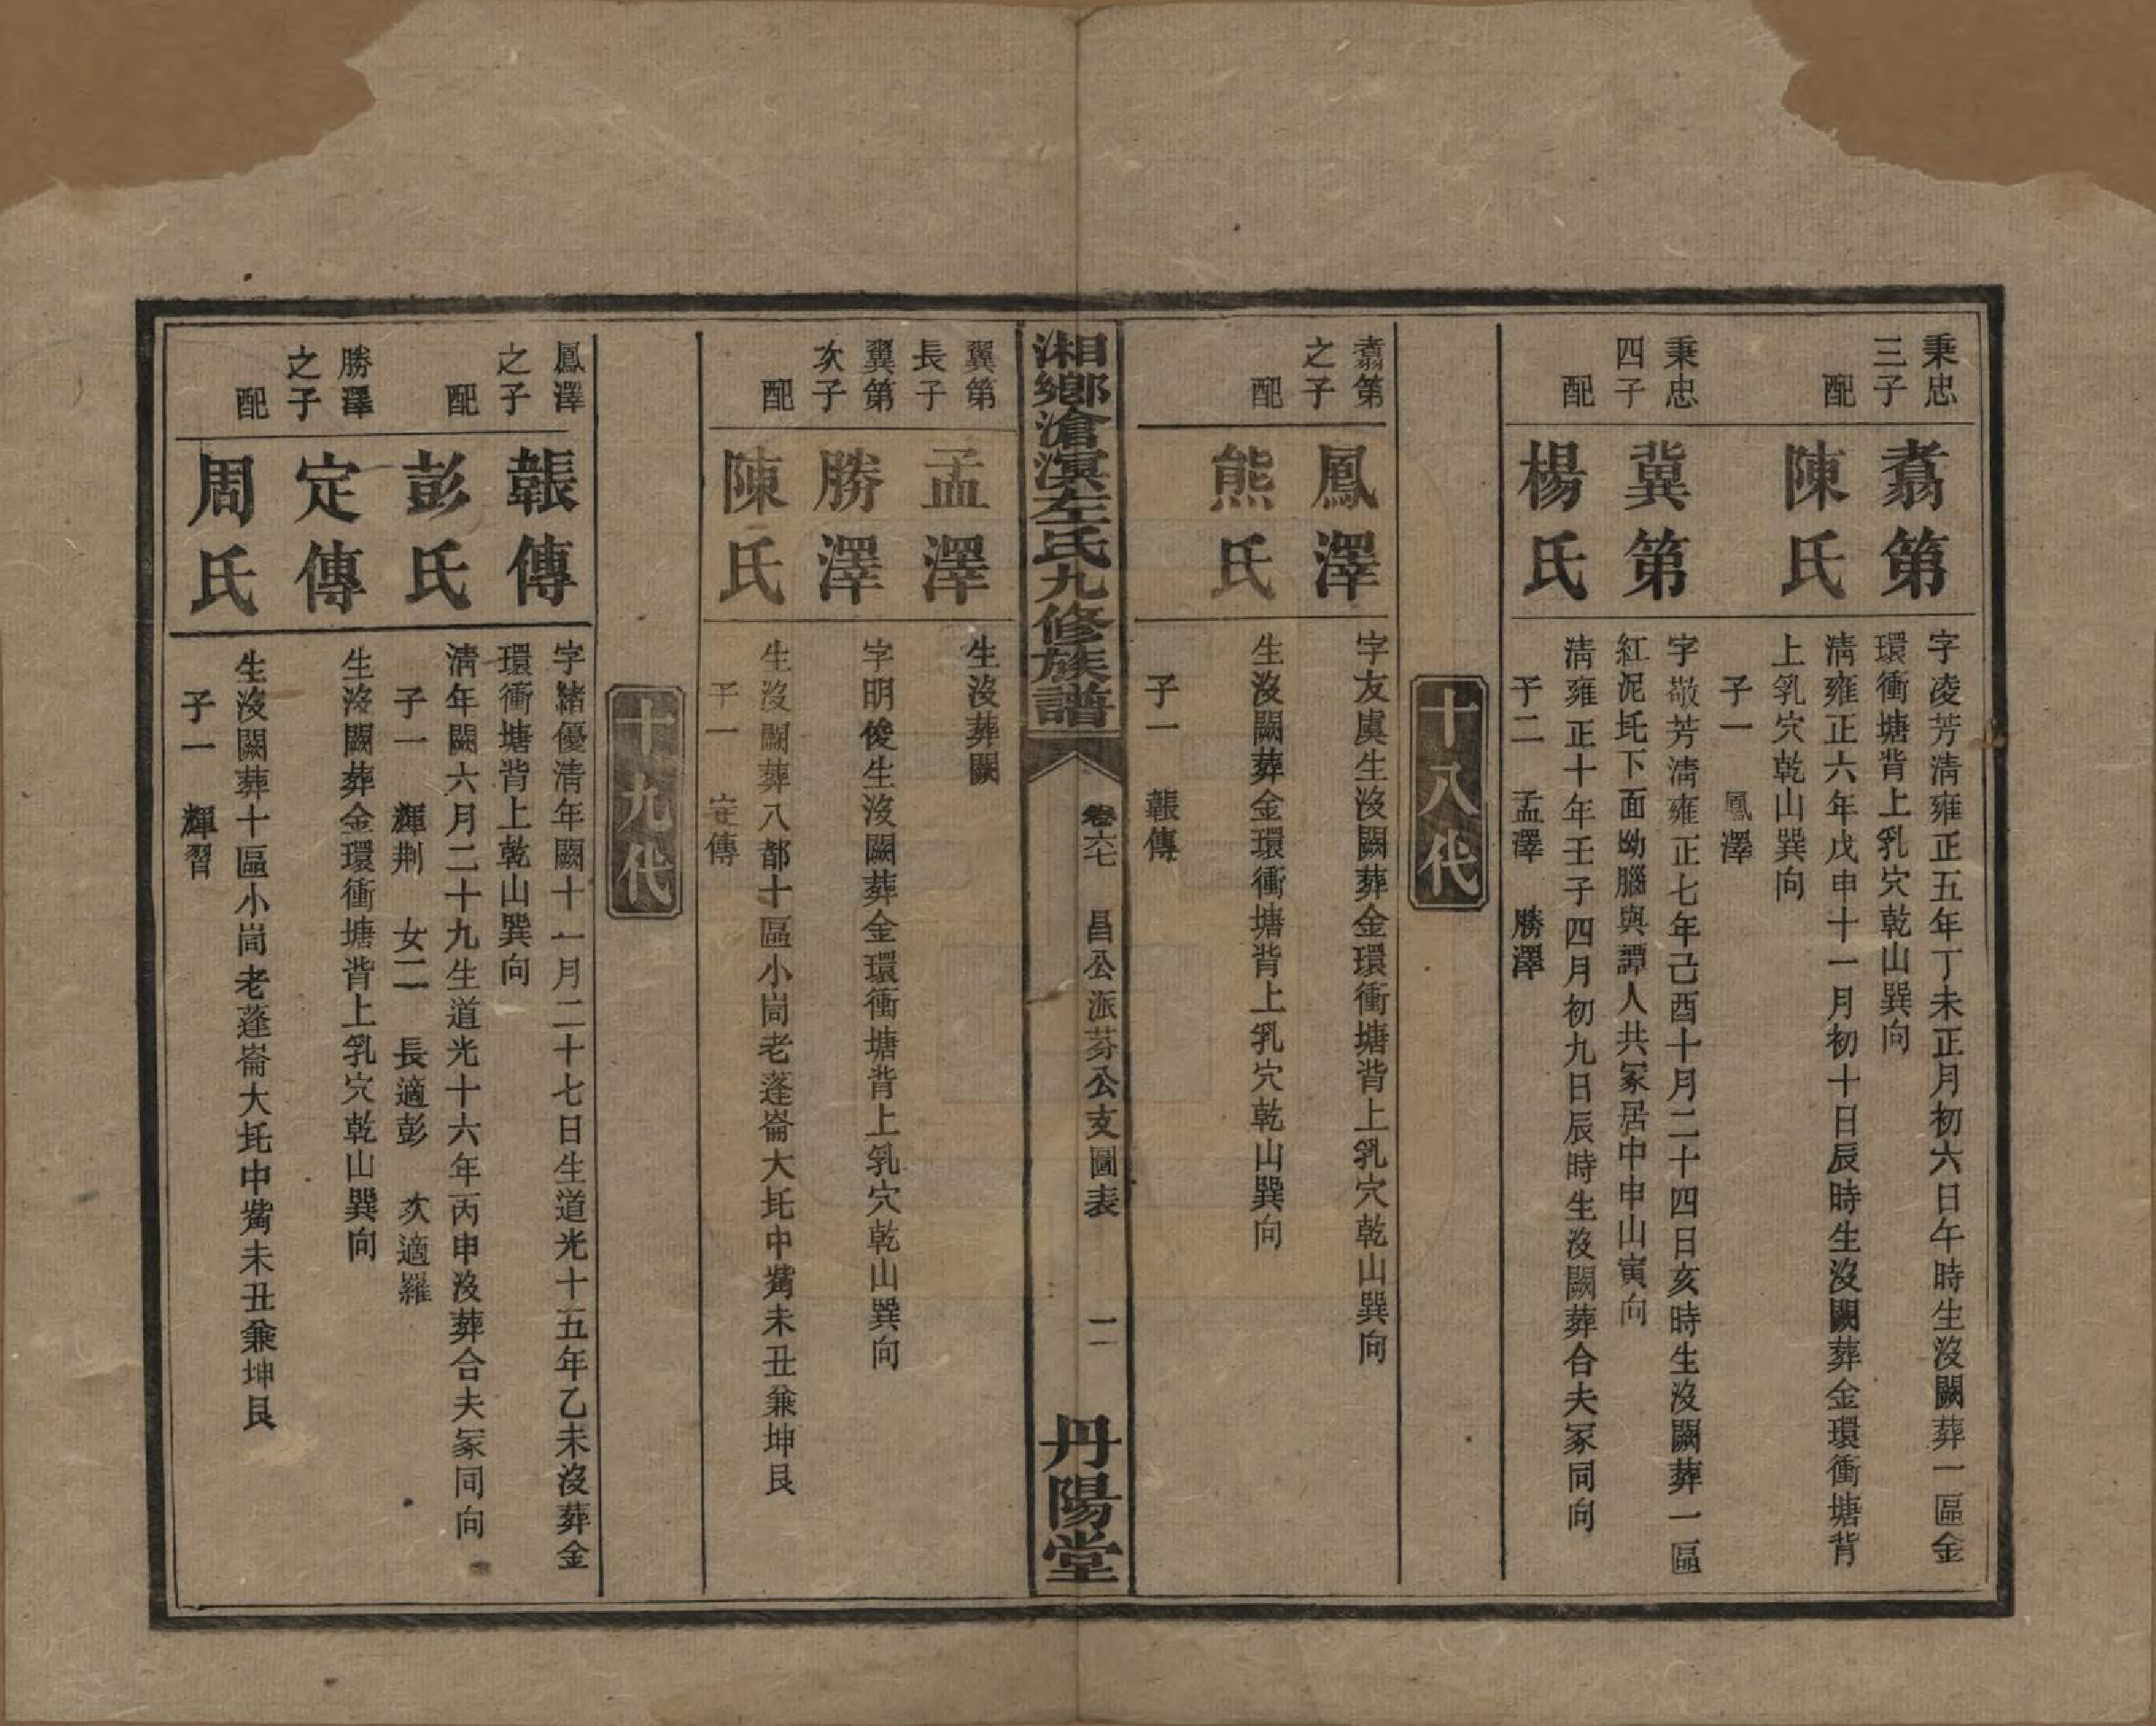 秉忠
三子
翥第
字凌芳清雍正五年丁未正月初六日午時生沒闕葬一區金
環衝塘背上乳穴乾山巽向
配
陳氏
清雍正六年戊申十一月初十日辰時生沒闕葬金環衝塘背
上乳穴乾山巽向
子一　鳳澤
秉忠
四子
冀第
字敬芳清雍正七年己酉十月二十四日亥時生沒闕葬一區
紅泥圫下面坳腦與譚人共冢居中申山寅向
配
楊氏
清雍正十年壬子四月初九日辰時生沒闕葬合夫冢同向
子二　孟澤　勝澤
十八代
翥第
之子
鳳澤
字友虞生沒闕葬金環衝塘背上乳穴乾山巽向
配
熊氏
生沒闕葬金環衝塘背上乳穴乾山巽向
子一　韔傳
湘鄉滄溟左氏九修族譜
卷六七　昌公派芬公支圖表　二
丹陽堂
冀第
長子
孟澤
生沒葬闕
冀第
次子
勝澤
字明俊生沒闕葬金環衝塘背上乳穴乾山巽向
配
陳氏
生沒闕葬八都十區小崗老蓬崙大圫中觜未丑兼坤艮
子一　定傳
十九代
鳳澤
之子
韔傳
字緒優清年闕十一月二十七日生道光十五年乙未沒葬金
環衝塘背上乾山巽向
配
彭氏
清年闕六月二十九生道光十六年丙申沒葬合夫冢同向
子一　輝荆　女二　長適彭　次適羅
勝澤
之子
定傳
生沒闕葬金環衝塘背上乳穴乾山巽向
配
周氏
生沒闕葬十區小崗老蓬崙大圫中觜未丑兼坤艮
子一　輝習